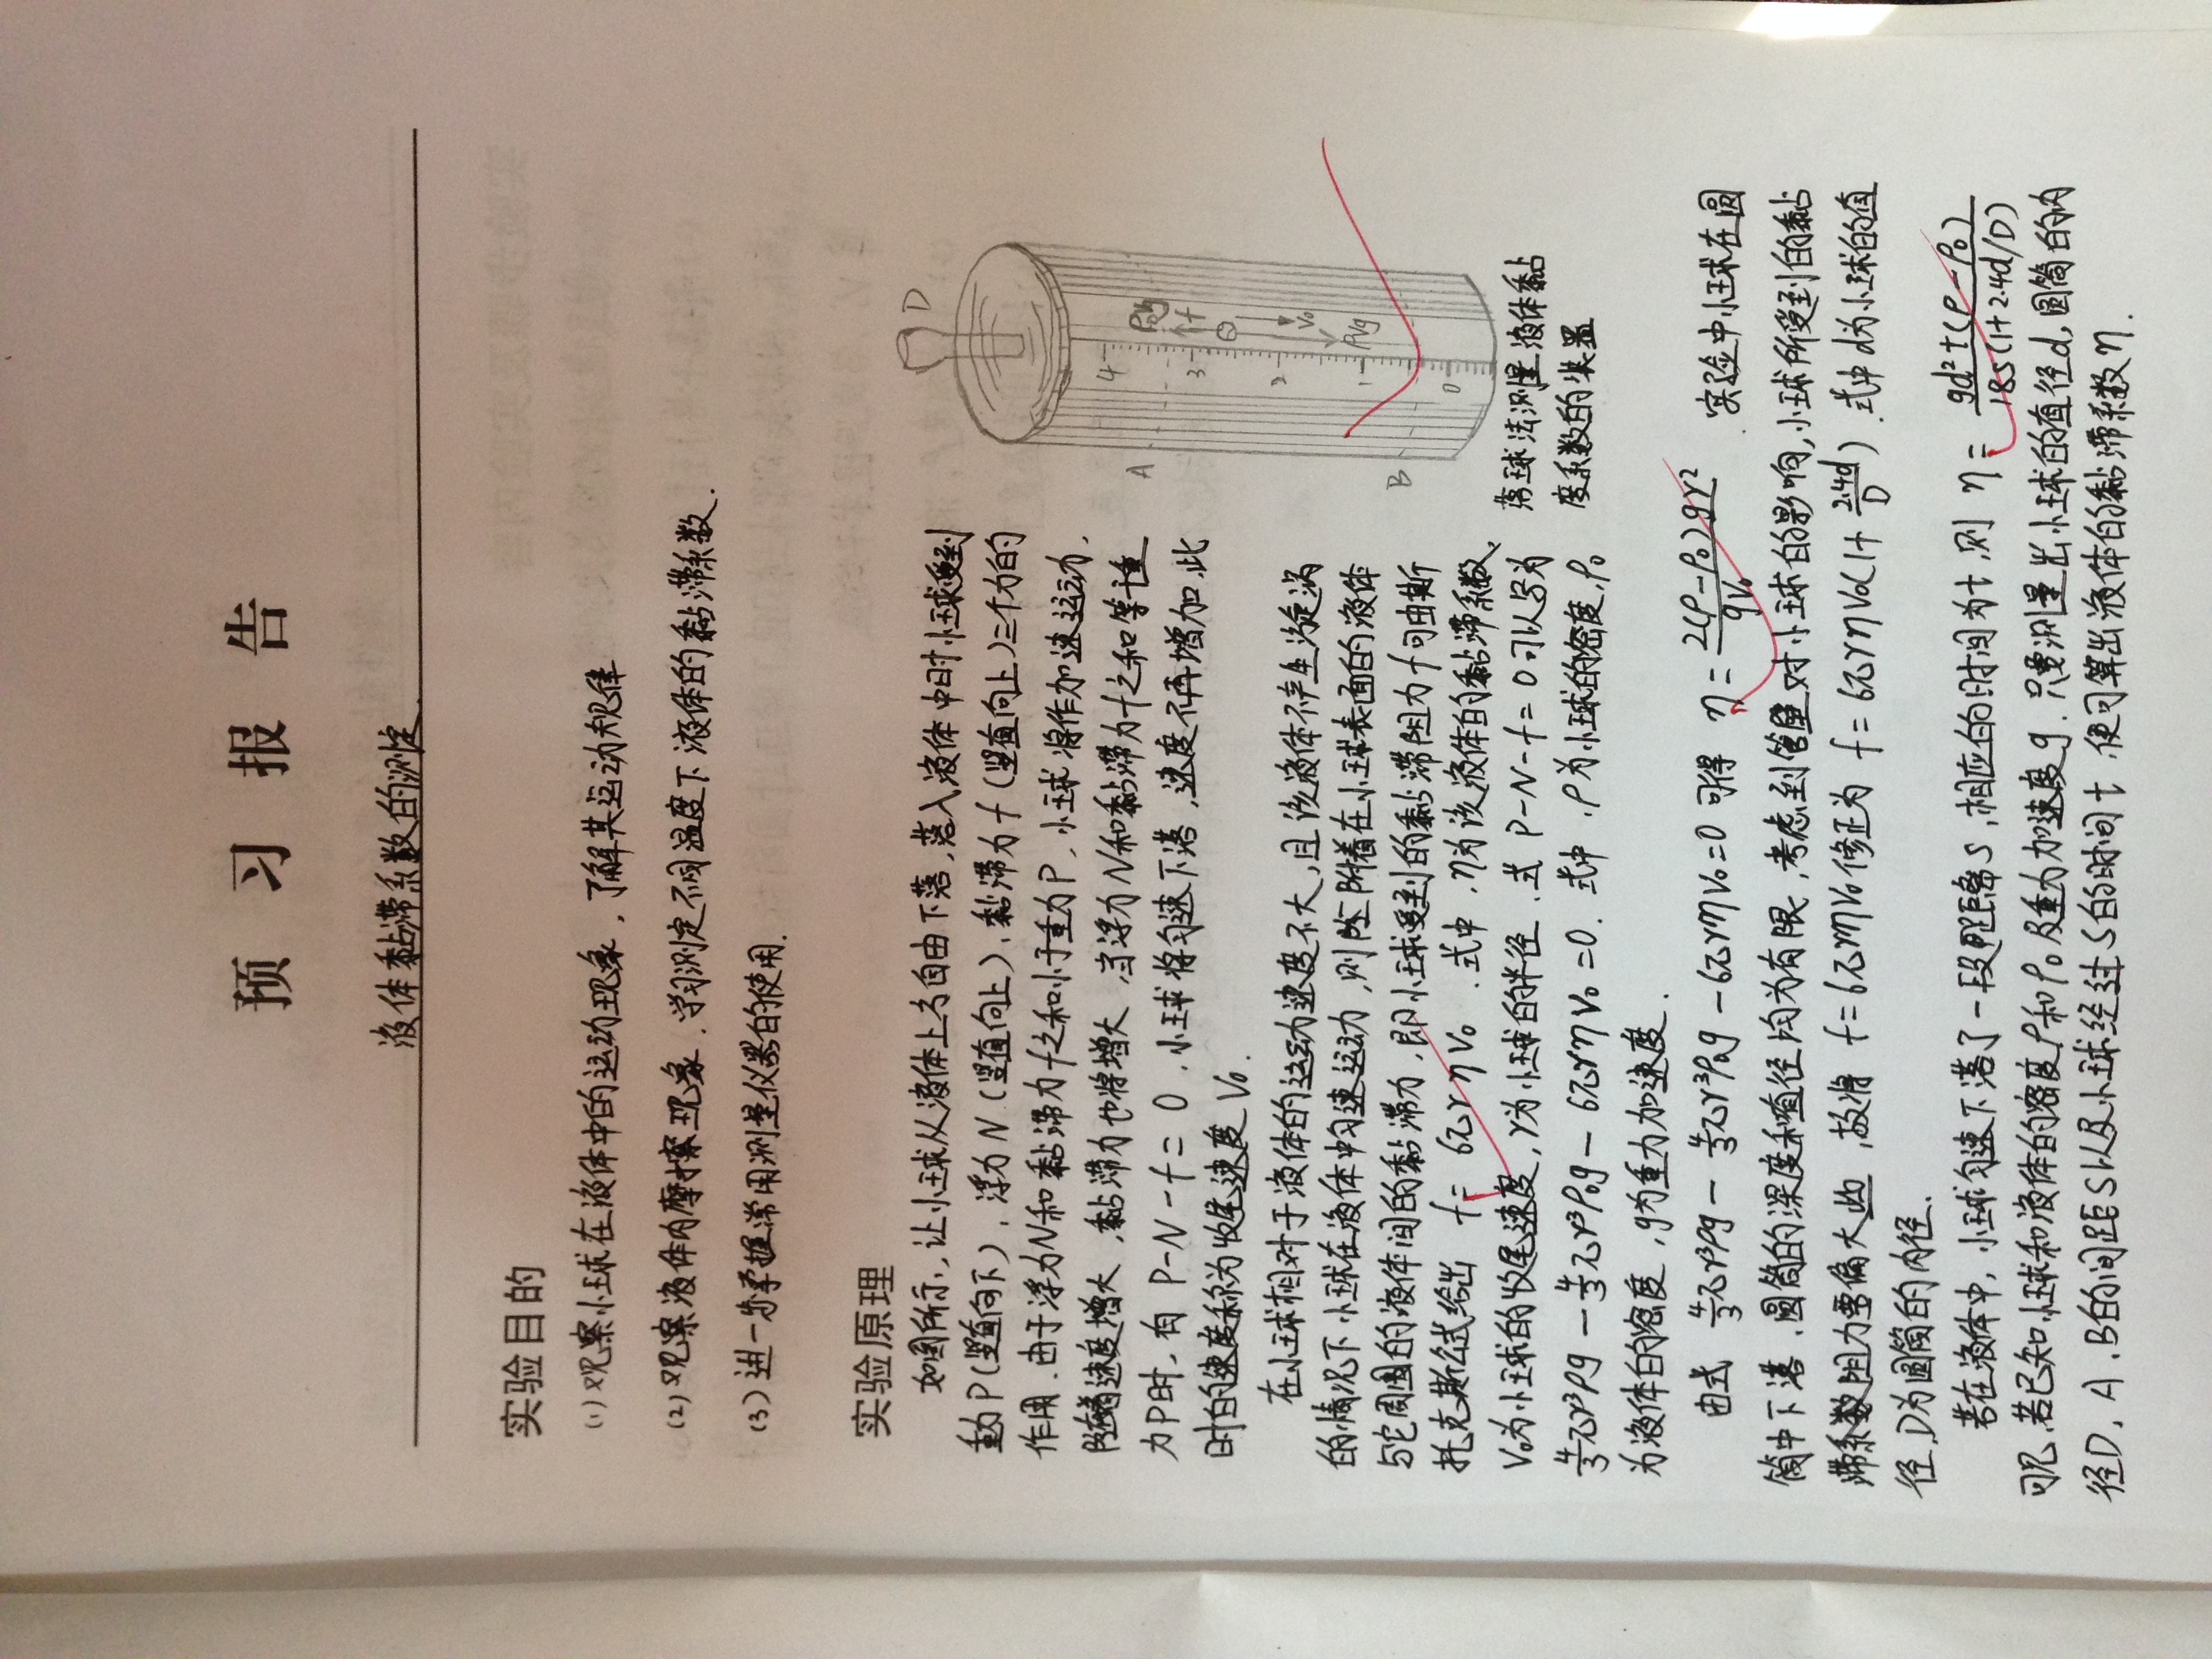 预习报告
液体黏滞系数的测定
实验目的
(1) 观察小球在液体中的运动现象，了解其运动规律
(2) 观察液体内摩擦现象，学习测定不同温度下液体的黏滞系数.
(3) 进一步掌握常用测量仪器的使用.
实验原理
如图所示，让小球从液体上方自由下落，落入液体中时小球受到
重力P(竖直向下)，浮力N(竖直向上)、黏滞力f(竖直向上)三个力的
作用.由于浮力N和黏滞力f之和小于重力P，小球将作加速运动，
随着速度增大，黏滞力也将增大，当浮力N和黏滞力f之和等于重
力P时，有 P-N-f=0，小球将匀速下落，速度不再增加，此
时的速度称为收尾速度V₀.
在小球相对于液体的运动速度不大，且该液体不产生漩涡
的情况下，小球在液体中匀速运动，则附着在小球表面的液体
与它周围的液体间的黏滞力，即小球受到的黏滞阻力f可由斯
托克斯公式给出 f=6πrηV₀.式中，η为该液体的黏滞系数，
V₀为小球的收尾速度，r为小球的半径.式 P-N-f=0可以写为
4/3πr³ρg-4/3πr³ρ₀g-6πrηV₀=0.式中，ρ为小球的密度，ρ₀
为液体的密度，g为重力加速度.
由式 4/3πr³ρg-4/3πr³ρ₀g-6πrηV₀=0可得 η=2(ρ-ρ₀)gr²/9V₀.实验中小球在圆
筒中下落，圆筒的深度和直径均为有限，考虑到管壁对小球的影响，小球所受到的黏
滞系数阻力要偏大些，故将 f=6πrηV₀修正为 f=6πrηV₀(1+2.4d/D).式中d为小球的直
径，D为圆筒的内径.
若在液体中，小球匀速下落了一段距离S，相应的时间为t，则 η=gd²t(ρ-ρ₀)/18S(1+2.4d/D)
可见，若已知小球和液体的密度ρ和ρ₀及重力加速度g，只要测量出小球的直径d，圆筒的内
径D，A、B的间距S以及小球经过S的时间t，便可算出液体的黏滞系数η.
D
A
B
4
3
2
1
0
f
V₀
ρVg
落球法测量液体黏
度系数的装置